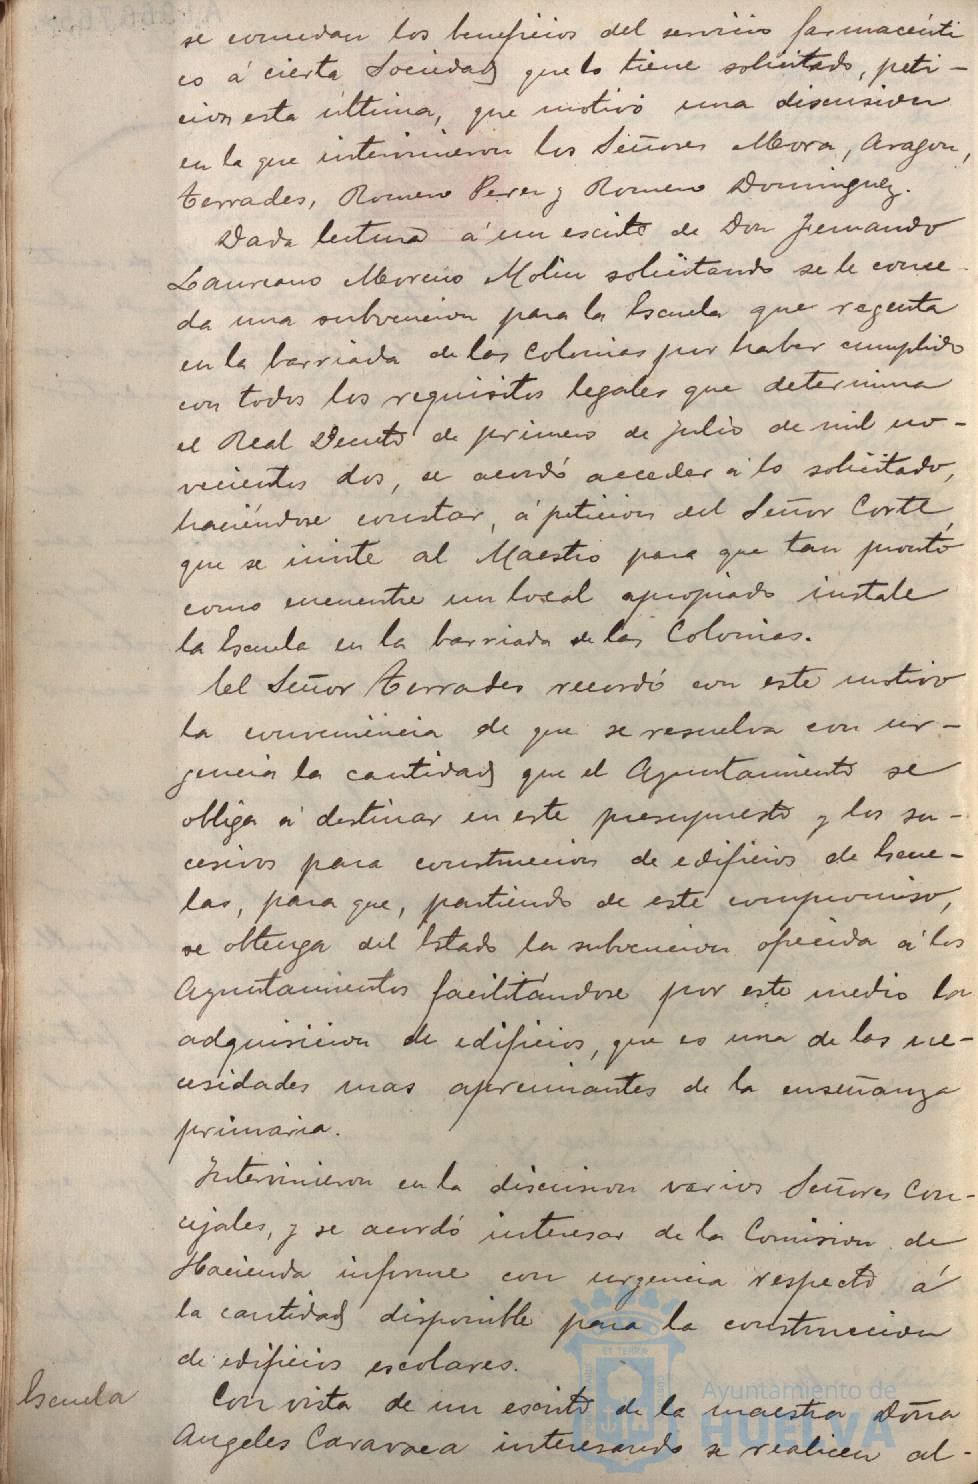 se concedan los beneficios del servicio farmacéuti
co á cierta Sociedad que lo tiene solicitado, peti-
cion esta última, que motivó una discusion
en la que intervinieron los Señores Mora, Aragon,
Terrades, Romero Perez y Romero Dominguez.
Dada lectura á un escrito de Don Fernando
Laureano Moreno Molin solicitando se le conce-
da una subvencion para la Escuela que regenta
en la barriada de las Colonias por haber cumplido
con todos los requisitos legales que determina
el Real Decreto de primero de Julio de mil no-
vecientos dos, se acordó acceder á lo solicitado,
haciéndose constar, á peticion del Señor Corte,
que se invite al Maestro para que tan pronto
como encuentre un local apropiado instale
la Escuela en la barriada de las Colonias.
El Señor Terrades recordó con este motivo
la conveniencia de que se resuelva con ur-
gencia la cantidad que el Ayuntamiento se
obliga á destinar en este presupuesto y los su-
cesivos para construccion de edificios de Escue-
las, para que, partiendo de este compromiso,
se obtenga del Estado la subvencion ofrecida á los
Ayuntamientos facilitándose por este medio la
adquisicion de edificios, que es una de las ne-
cesidades mas apremiantes de la enseñanza
primaria.
Intervinieron en la discusion varios Señores Con-
cejales, y se acordó interesar de la Comision de
Hacienda informe con urgencia respecto á
la cantidad disponible para la construccion
de edificios escolares.
Escuela Con vista de un escrito de la maestra Doña
Angeles Caravaca interesando se realicen al-
Ayuntamiento de
HUELVA